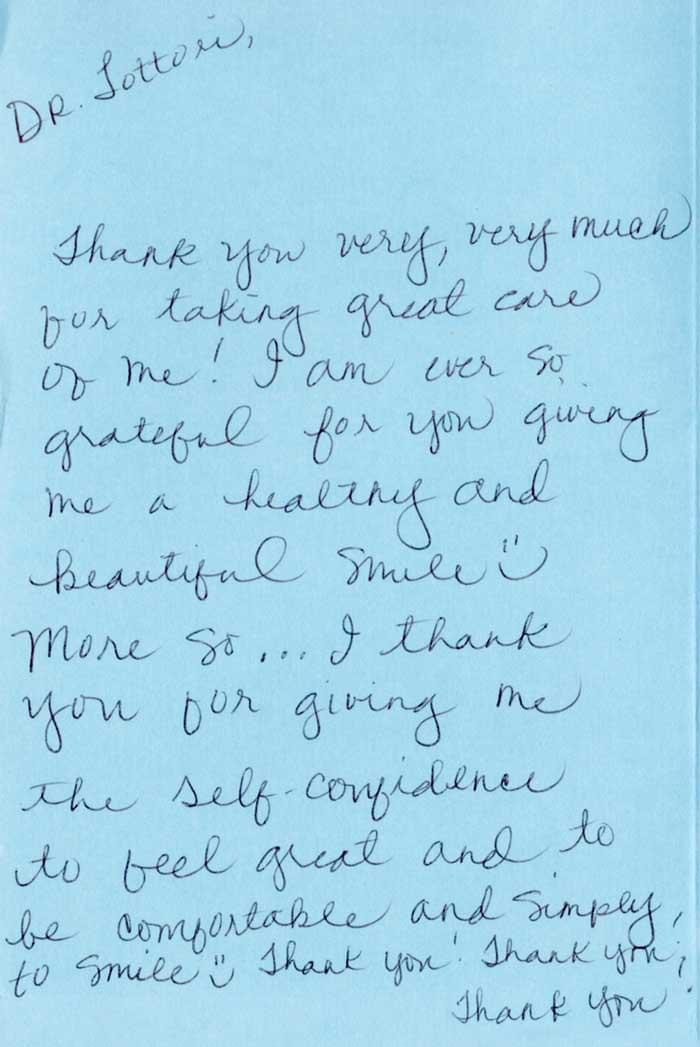 DR. Lottori,
Thank you very, very much
for taking great care
of me! I am ever so
grateful for you giving
me a healthy and
beautiful smile Ü
More so... I thank
you for giving me
the self-confidence
to feel great and to
be comfortable and simply,
to smile Ü Thank you! Thank you,
Thank you!